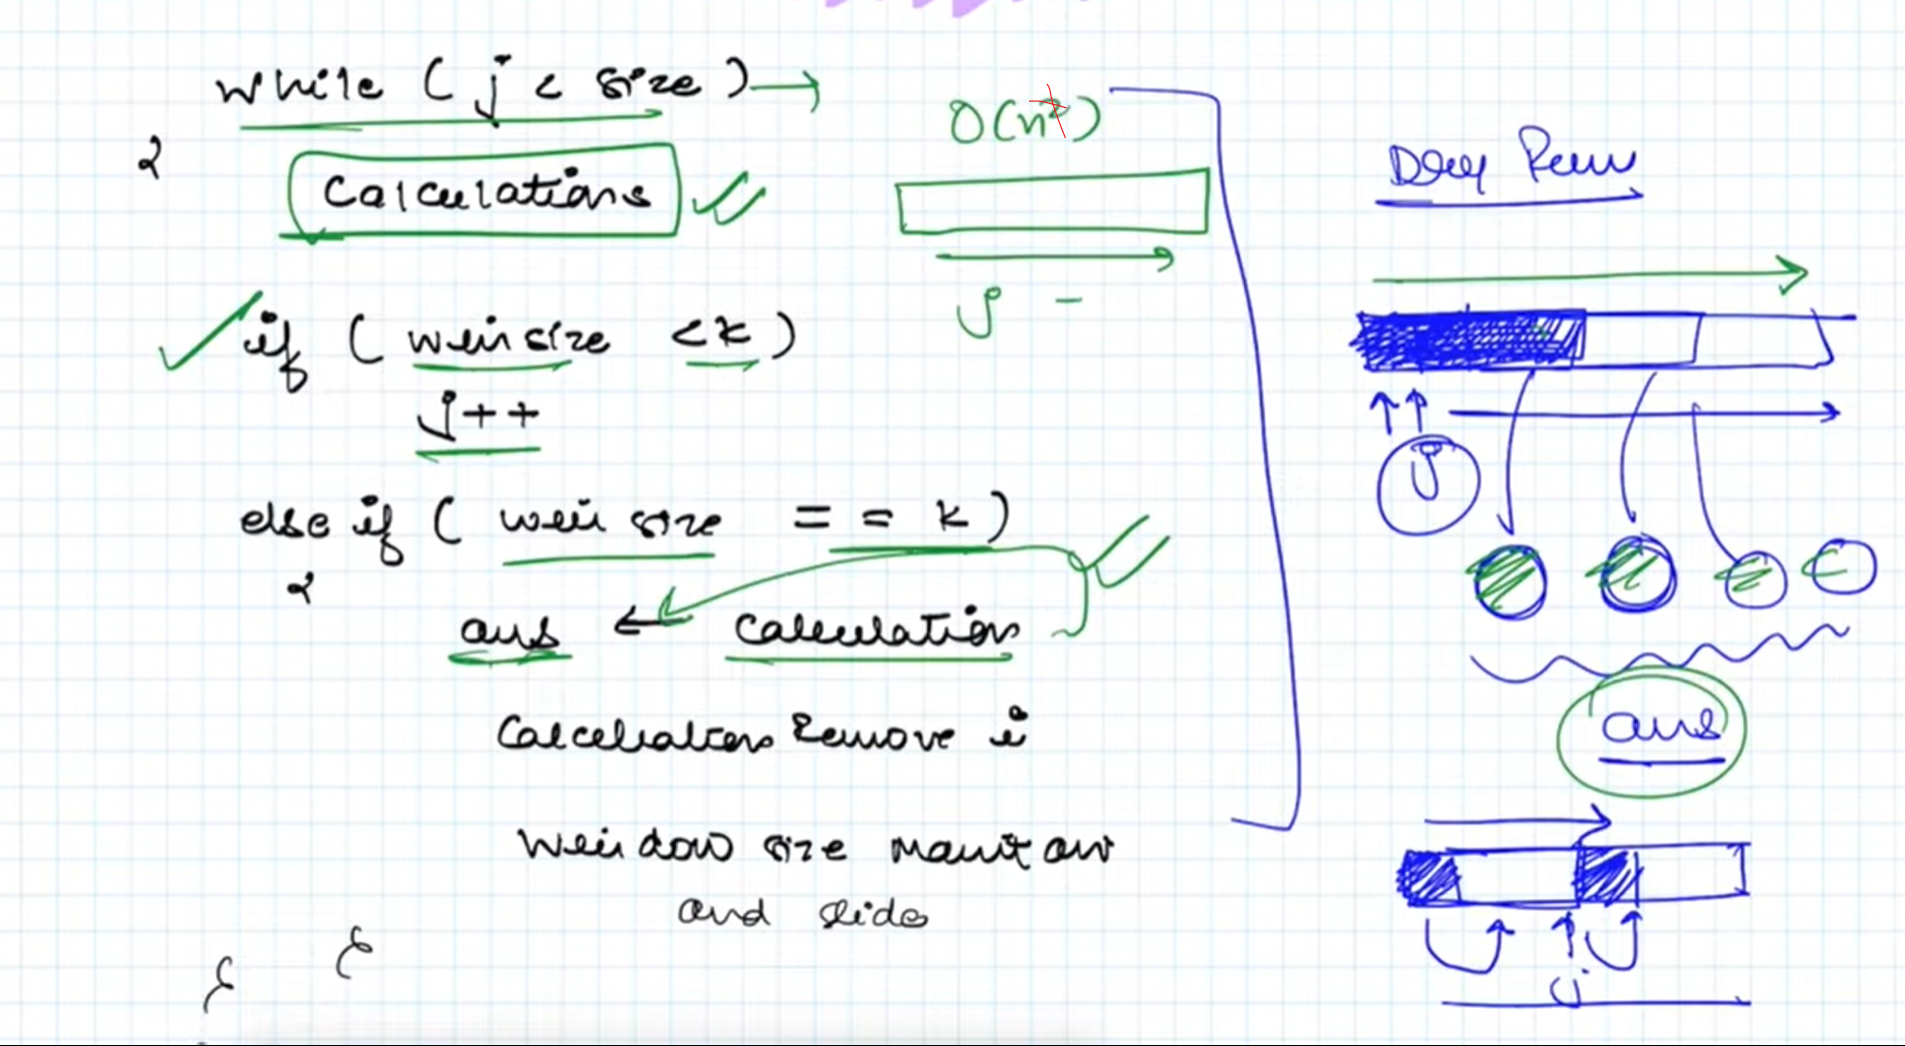 while ( j < size ) →
{
Calculations
if ( win size < k )
j++
else if ( win size = = k )
{
ans ← calculation
Calculation Remove i
window size maintain
and slide
}
}
O(n²)
j -
Dry Run
j
ans
j